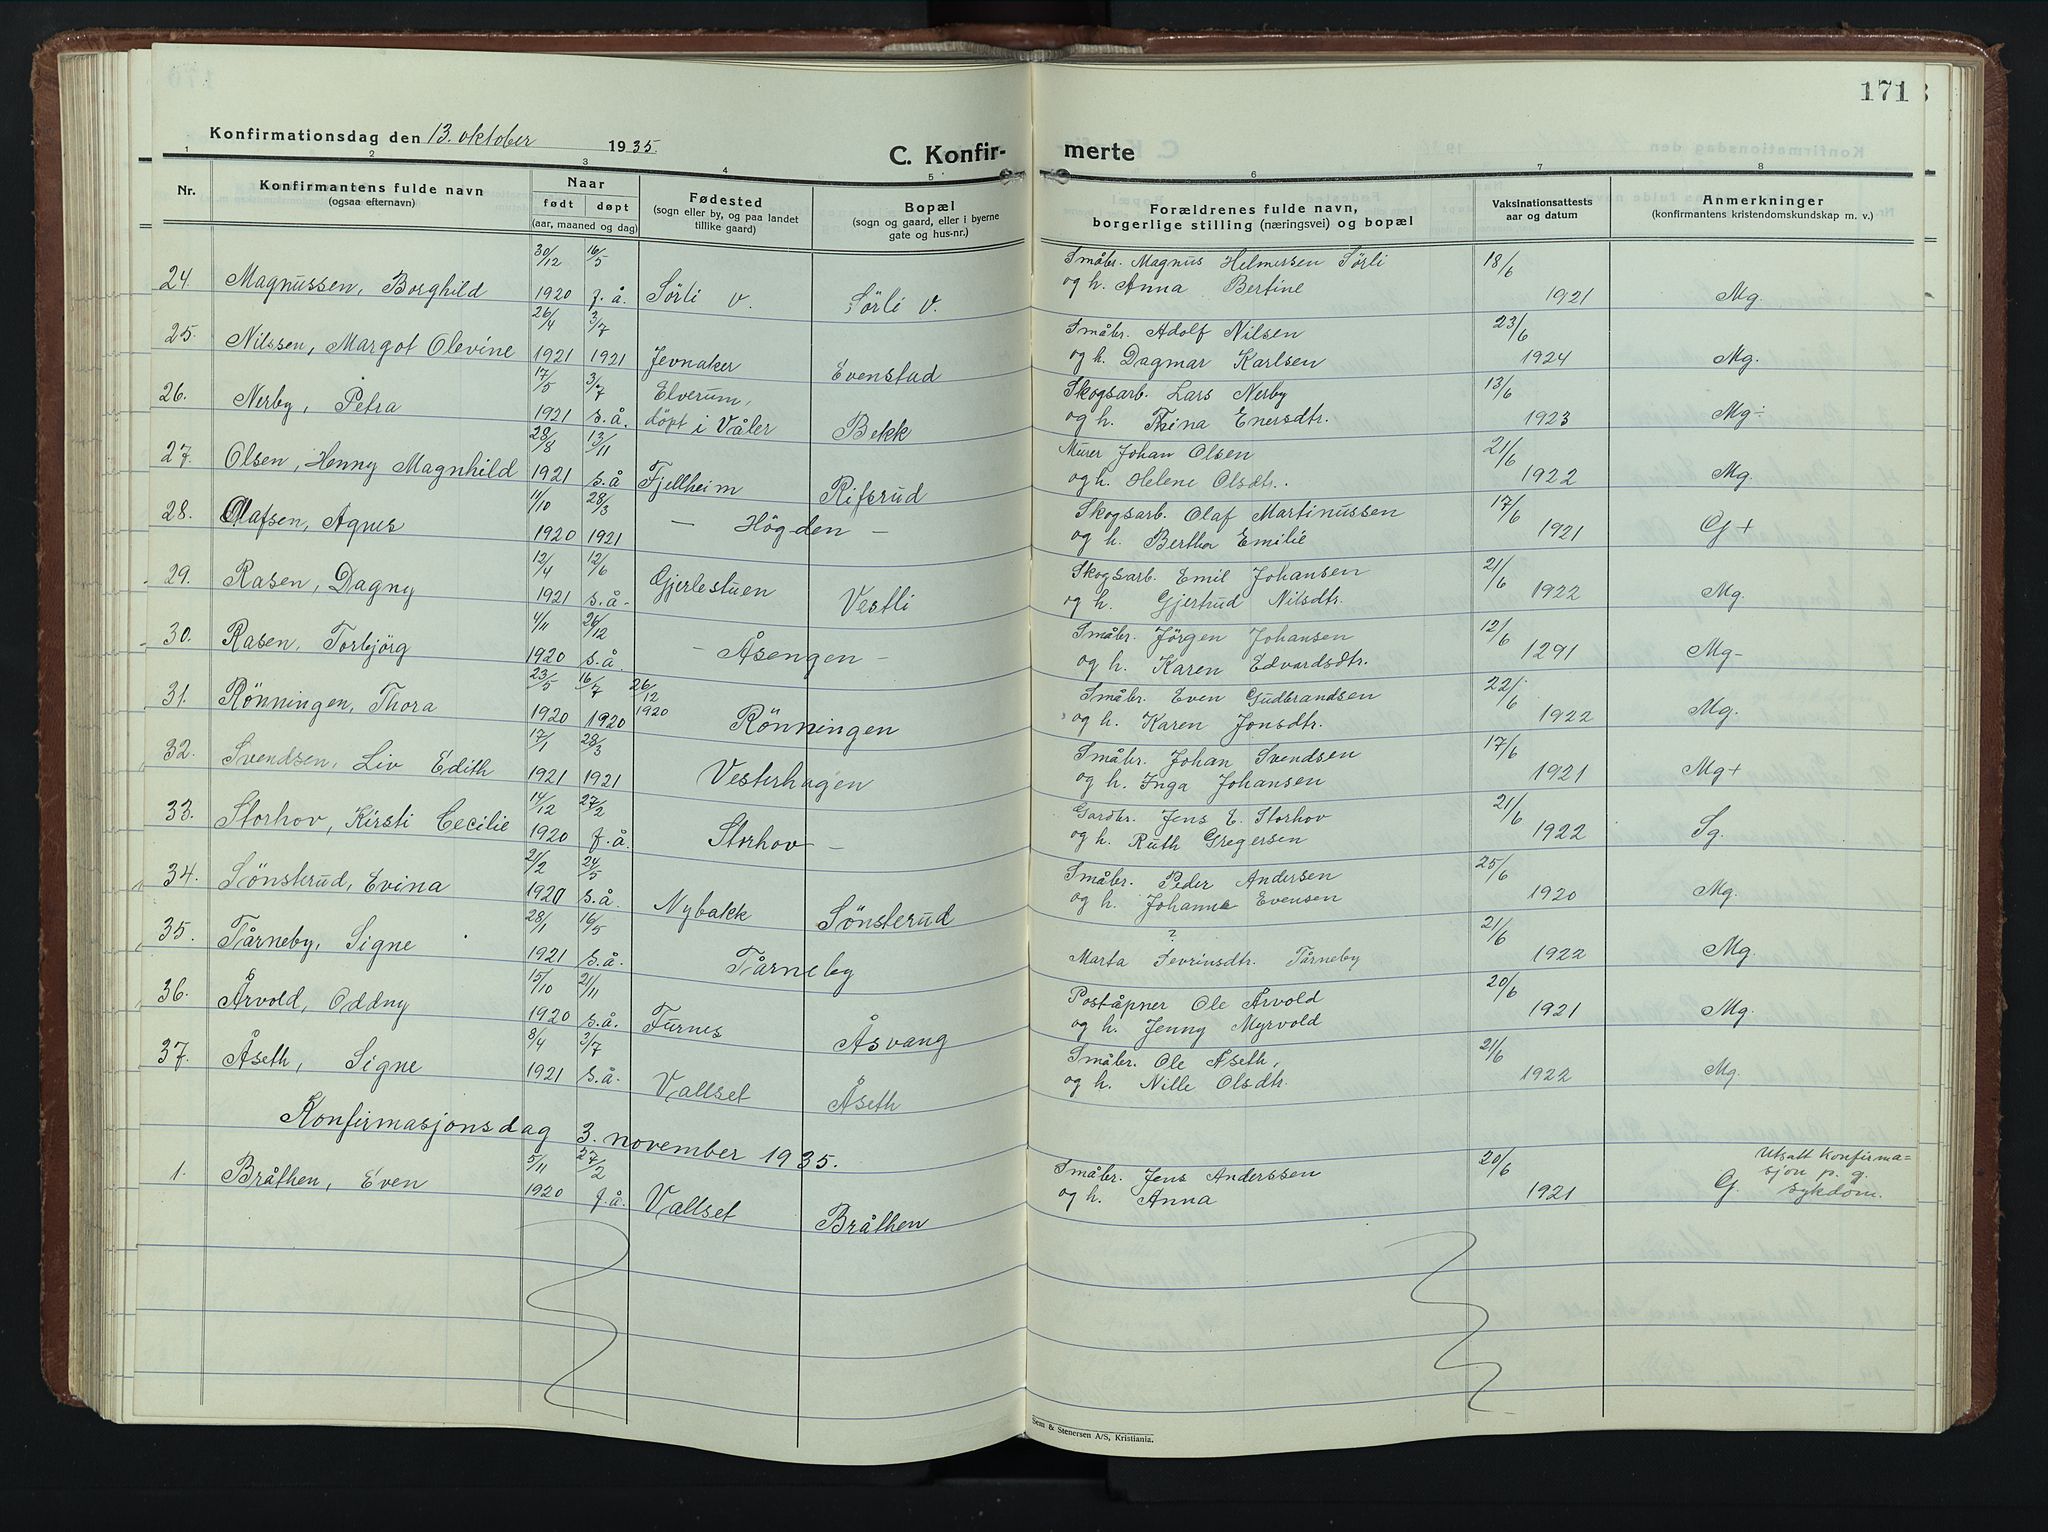 171
Konfirmationsdag den 13. oktober 1935.
C. Konfirmerte
1 2 3 4 5 6 7 8
Nr. Konfirmantens fulde navn (ogsaa efternavn) Naar født døpt (aar, maaned og dag) Fødested (sogn eller by, og paa landet tillike gaard) Bopæl (sogn og gaard, eller i byerne gate og hus-nr.) Forældrenes fulde navn, borgerlige stilling (næringsvei) og bopæl Vaksinationsattests aar og datum Anmerkninger (konfirmantens kristendomskundskap m. v.)
24. Magnussen, Borghild 30/12 1920 16/5 f.å. Sørli v. Sørli v. Småbr. Magnus Helmersen Sørli og h. Anna Bertine 18/6 1921 Mg.
25. Nilssen, Margot Olevine 26/4 1921 3/7 1921 Jevnaker Evenstad Småbr. Adolf Nilsen og h. Dagmar Karlsen 23/6 1924 Mg.
26. Nerby, Petra 17/5 1921 3/7 s.å. Elverum, døpt i Våler Bekk Skogsarb. Lars Nerby og h. Trina Enersdtr. 13/6 1923 Mg÷
27. Olsen, Henny Magnhild 28/8 1921 13/11 s.å Fjellheim Rifsrud Murer Johan Olsen og h. Helene Olsdtr. 21/6 1922 Mg.
28. Olafsen, Agnes 11/10 1920 28/3 1921 – Högden – Skogsarb. Olaf Martinussen og h. Bertha Emilie 17/6 1921 G+
29. Rasen, Dagny 12/4 1921 12/6 s.å. Gjerlestuen Vestli Skogsarb. Emil Johansen og h. Gjertrud Nilsdtr. 21/6 1922 Mg.
30. Rasen, Torbjörg 4/11 1920 26/12 s.å. – Åsengen – Småbr. Jörgen Johansen og h. Karen Edvardsdtr. 12/6 1291 Mg-
31. Rönningen, Thora 23/5 1920 16/7 1920 26/12 1920 Rönningen Småbr. Even Gudbrandsen og h. Karen Jonsdtr. 22/6 1922 Mg.
32. Svendsen, Liv Edith 17/1 1921 28/3 1921 Vesterhagen Småbr. Johan Svendsen og h. Inga Johansen 17/6 1921 Mg+
33. Storhov, Kirsti Cecilie 14/12 1920 27/2 f.å. Storhov – Gardbr. Jens E. Storhov og h. Ruth Gregersen 21/6 1922 Sg.
34. Sönsterud, Evina 21/2 1920 24/5 s.å. Nybakk Sönsterud Småbr. Peder Andersen og h. Johanne Evensen 25/6 1920 Mg.
35. Tårneby, Signe 28/1 1921 16/5 s.å. Tårneby ? Marta Sevrinsdtr. Tårneby 21/6 1922 Mg.
36. Årvold, Oddny 15/10 1920 21/11 s.å. Furnes Åsvang Poståpner Ole Årvold og h. Jenny Myrvold 20/6 1921 Mg.
37. Åseth, Signe 8/4 1921 3/7 s.å. Vallset Åseth Småbr. Ole Åseth, og h. Nille Olsdtr. 21/6 1922 Mg.
Konfirmasjonsdag 3. november 1935.
1. Bråthen, Even 5/11 1920 27/2 f.å. Vallset Bråthen Småbr. Jens Anderssen og h. Anna 20/6 1921 G. Utsatt konfirmasjon p. g. sykdom.
Sem & Stenersen A/S, Kristiania.